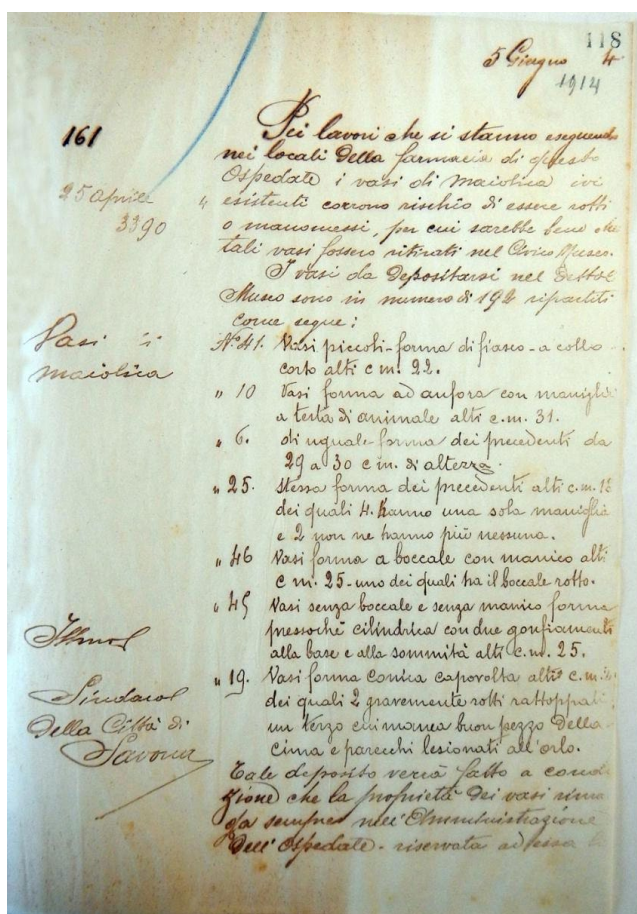 118
5 Giugno 4
1914
161
Pei lavori che si stanno eseguendo
nei locali della farmacia di questo
Ospedale i vasi di maiolica ivi
25 Aprile " esistenti corrono rischio di essere rotti
3390 o manomessi, per cui sarebbe bene che
tali vasi fossero ritirati nel Civico Museo.
I vasi da depositarsi nel detto
Museo sono in numero di 192 ripartiti
come segue:
Vasi di
maiolica
N.° 41. Vasi piccoli-forma di fiasco-a collo
corto alti c m. 22.
" 10 Vasi forma ad anfora con maniglie
a testa di animale alti c.m. 31.
" 6. di uguale forma dei precedenti da
29 a 30 c m. di altezza.
" 25. stessa forma dei precedenti alti c.m.
dei quali 4. hanno una sola maniglia
e 2 non ne hanno più nessuna.
" 46 Vasi forma a boccale con manico alti
c m. 25-uno dei quali ha il boccale rotto.
" 45 Vasi senza boccale e senza manico forma
pressochè cilindrica con due gonfiamenti
alla base e alla sommità alti c.m. 25.
" 19. Vasi forma conica capovolta alti c.m.
dei quali 2 gravemente rotti rattoppati
un terzo cui manca buon pezzo della
cima e parecchi lesionati all'orlo.
Illmo
Sindaco
della Città di
Savona
Tale deposito verrà fatto a condi
zione che la proprietà dei vasi riman
ga sempre nell'Amministrazione
dell'Ospedale. riservata ad essa la